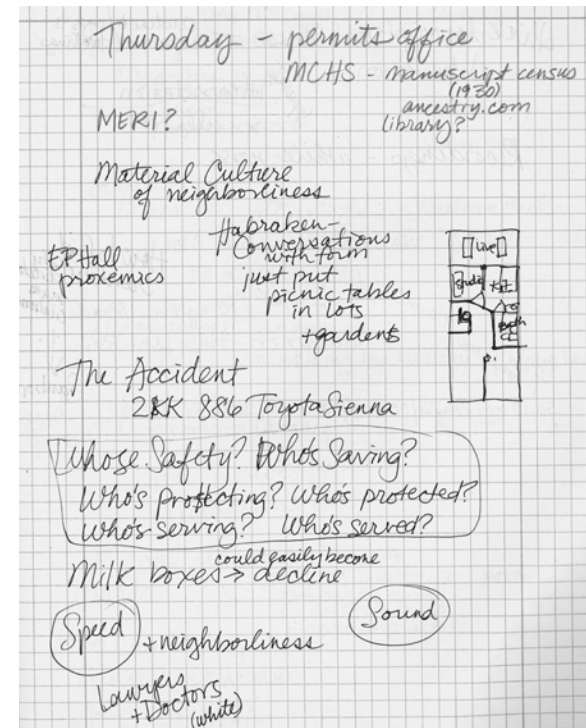 Thursday - permits office
MCHS - manuscript census
(1930)
ancestry.com
library?
MERI?
Material Culture
of neigerborliness
Habraken-
Conversations
with form
just put
picnic tables
in lots
+gardens
EP Hall
proxemics
live
studio
kit
bath
The Accident
2KK 886 Toyota Sienna
Whose Safety? Who's Saving?
Who's protecting? Who's protected?
Who's serving? Who's served?
could easily become
Milk boxes → decline
Speed
+neighborliness
Sound
Lawyers
+Doctors
(white)